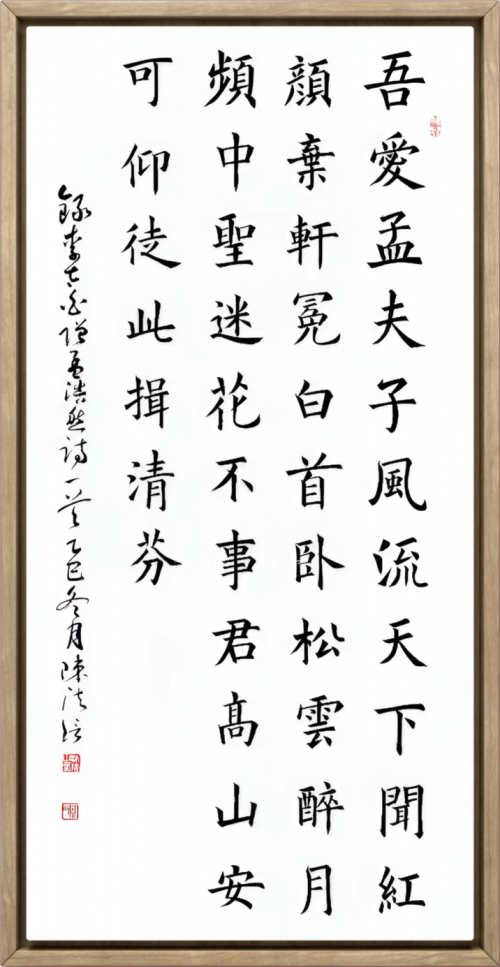 吾愛孟夫子風流天下聞紅
顔棄軒冕白首卧松雲醉月
頻中聖迷花不事君髙山安
可仰徒此揖清芬
錄李太白贈孟浩然詩一首乙巳冬月陳法